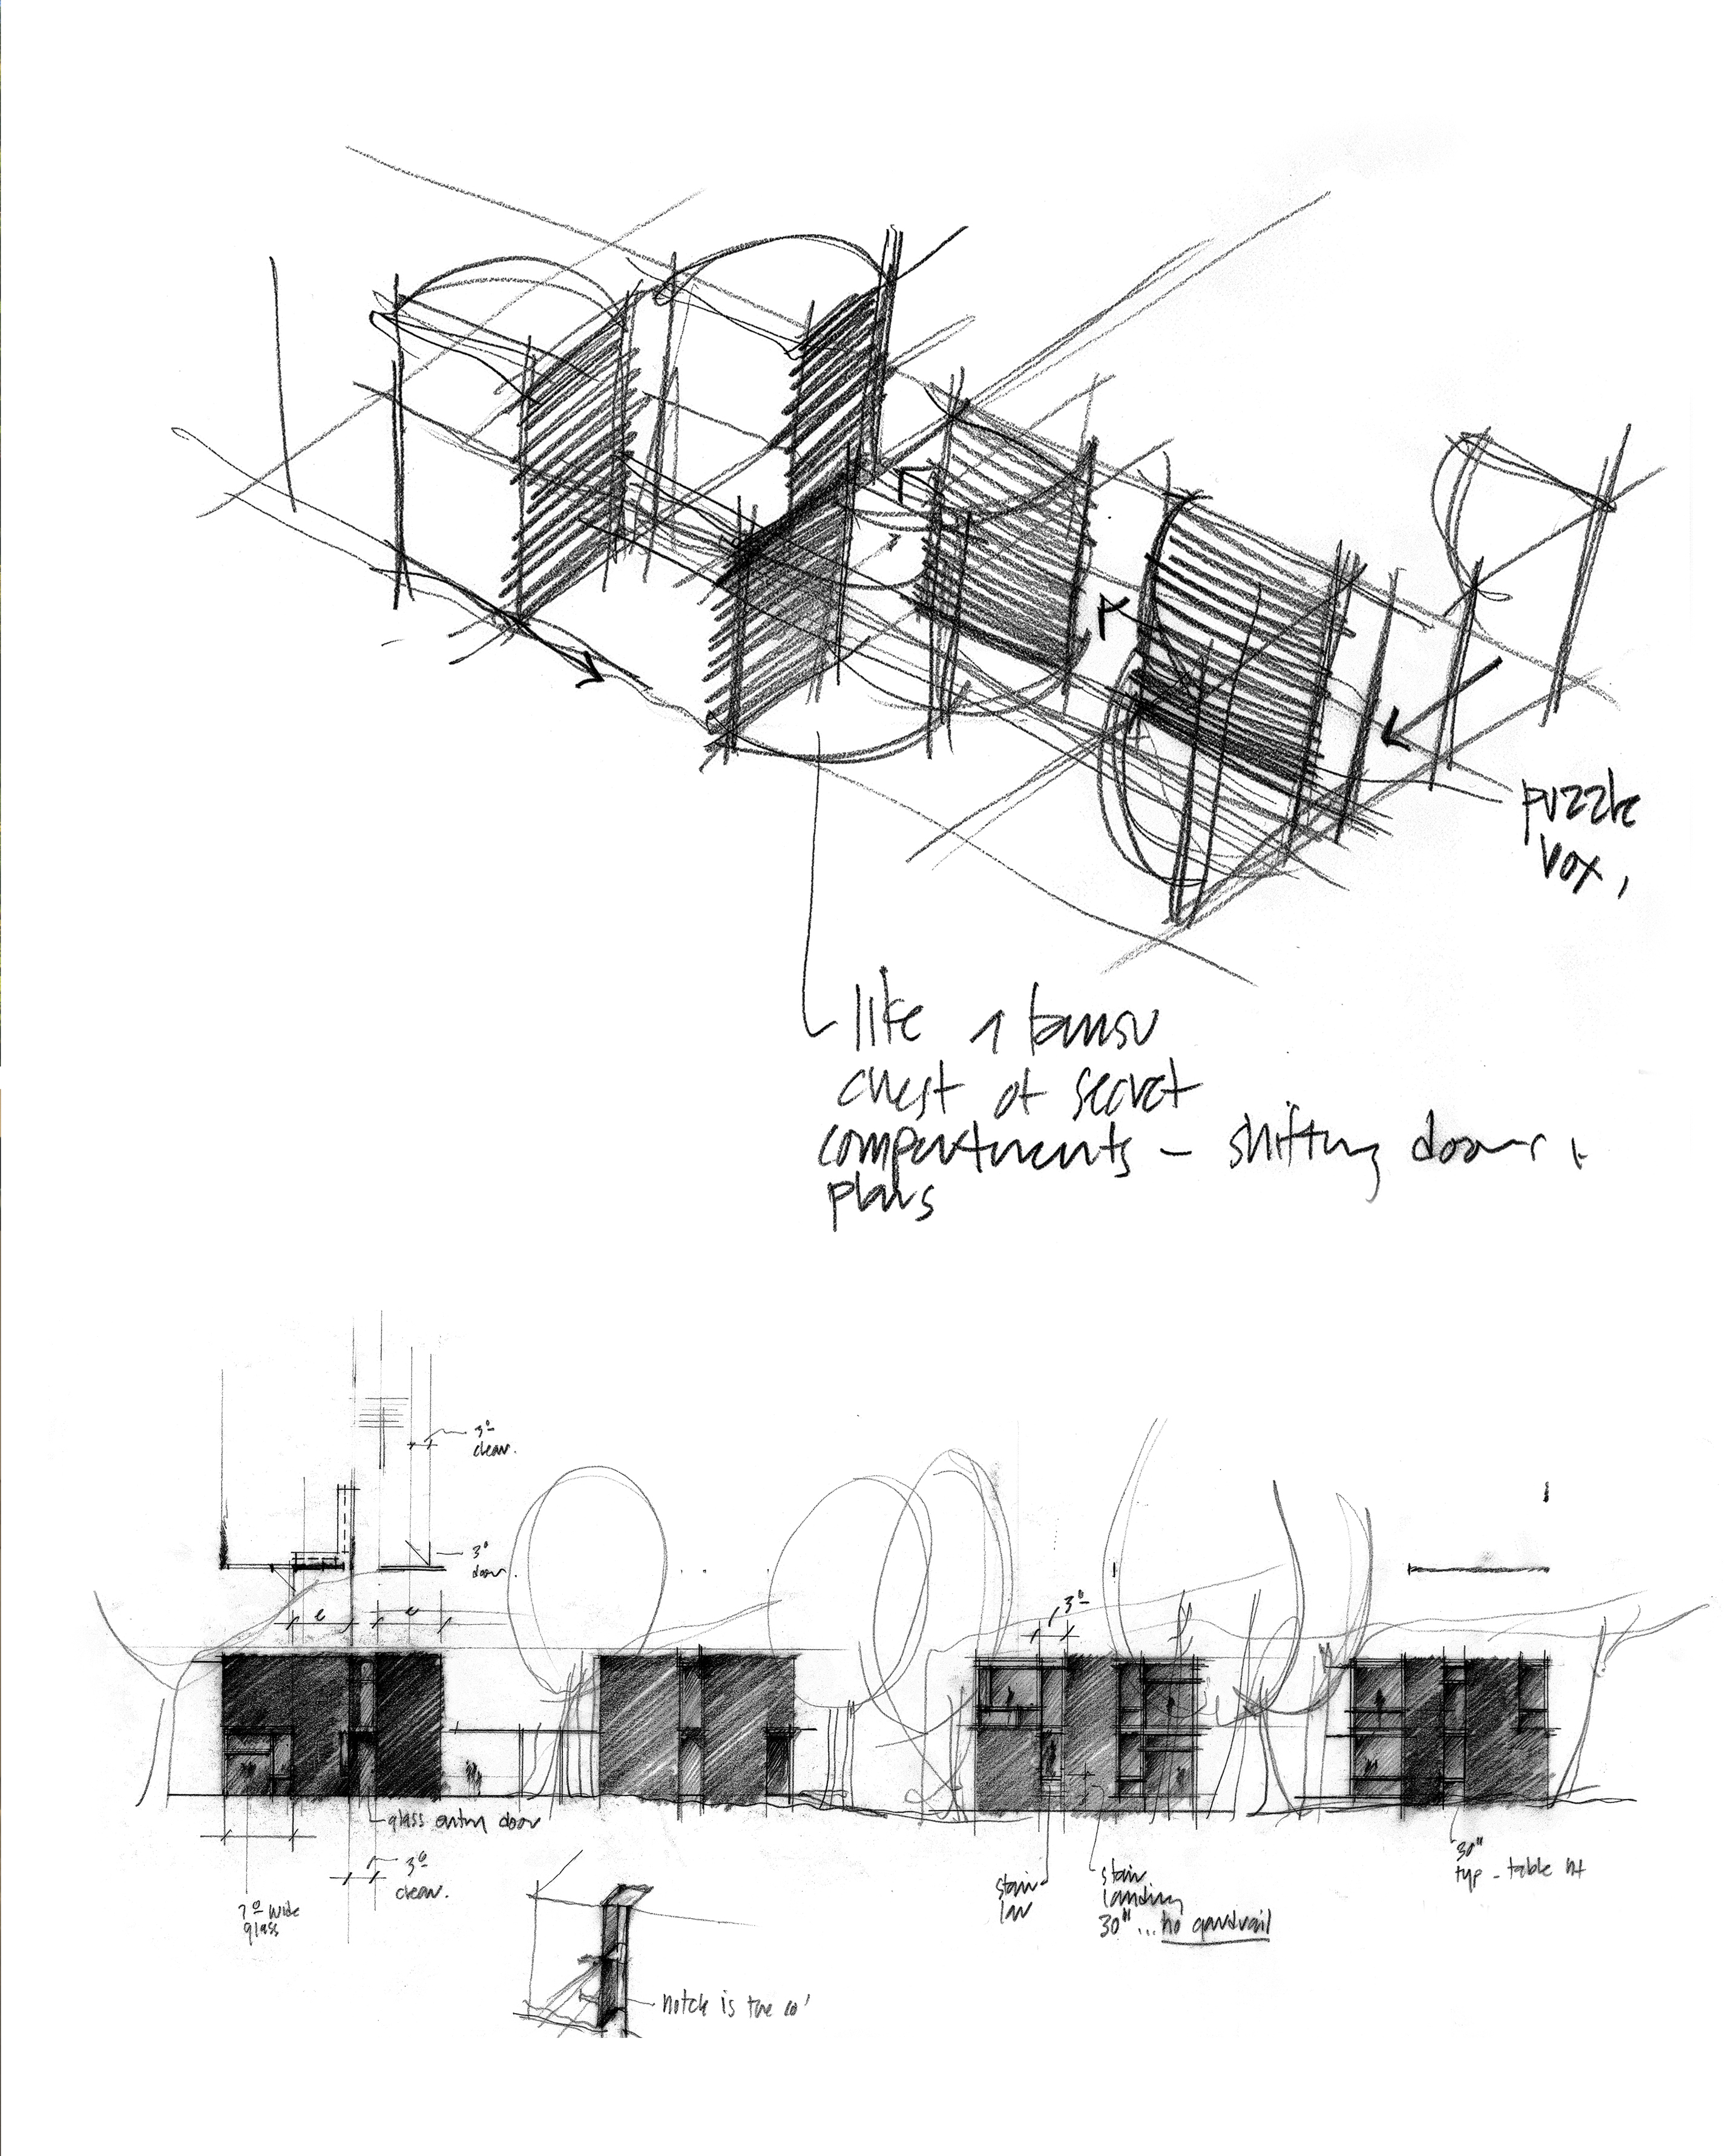 puzzle
vox,
like a tansu
chest of secret
compartments - shifting doors +
plans
3⁰
clear.
3⁰
door.
e e
3⁰
glass entry door
3⁰
clear.
7⁰ wide
glass
stair
lav
stair
landing
30" ... no guardrail
30"
typ - table ht
notch is the